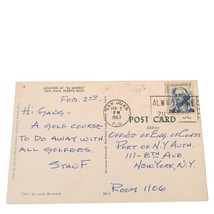 GOLFERS AT "EL MORRO"
SAN JUAN, PUERTO RICO
FEB. 2ND —
HI GANG —
A GOLF COURSE
TO DO AWAY WITH
ALL GOLFERS.
STAN F.
SAN JUAN
FEB 2
PM
1967
P.R.
POST CARD
OFFICE OF ENG. OF CONST
PORT OF N.Y. AUTH.
111-8TH AVE
NEW YORK, N.Y.
ROOM 1106